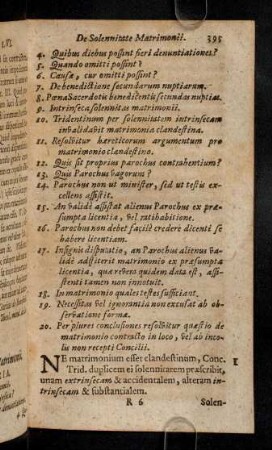 De Solennitate Matrimonii. 395
4. Quibus diebus possint fieri denuntiationes?
5. Quando omitti possint?
6. Causæ, cur omitti possint?
7. De benedictione secundarum nuptiarum.
8. Pœna Sacerdotis benedicentis secundas nuptias.
9. Intrinseca solennitas matrimonii.
10. Tridentinum per solennitatem intrinsecam
invalidavit matrimonia clandestina.
11. Resolvitur hæreticorum argumentum pro
matrimonio clandestino.
12. Quis sit proprius parochus contrahentium?
13. Quis Parochus vagorum?
14. Parochus non ut minister, sed ut testis ex-
cellens assistit.
15. An validè assistat alienus Parochus ex præ-
sumpta licentia, vel ratihabitione.
16. Parochus non debet facilè credere dicenti se
habere licentiam.
17. Insignis disputatio, an Parochus alienus va-
lidè adstiterit matrimonio ex præsumpta
licentia, quæ revera quidem data est, assi-
stenti tamen non innotuit.
18. In matrimonio quales testes sufficiant.
19. Necessitas vel ignorantia non excusat ab ob-
servatione formæ.
20. Per plures conclusiones resolvitur quæstio de
matrimonio contracto in loco, vel ab inco-
lu non recepti Concilii.
NE matrimonium esset clandestinum, Conc. I
Trid. duplicem ei solennitatem præscribit,
unam extrinsecam & accidentalem, alteram in-
trinsecam & substantialem.
R 6 Solen-